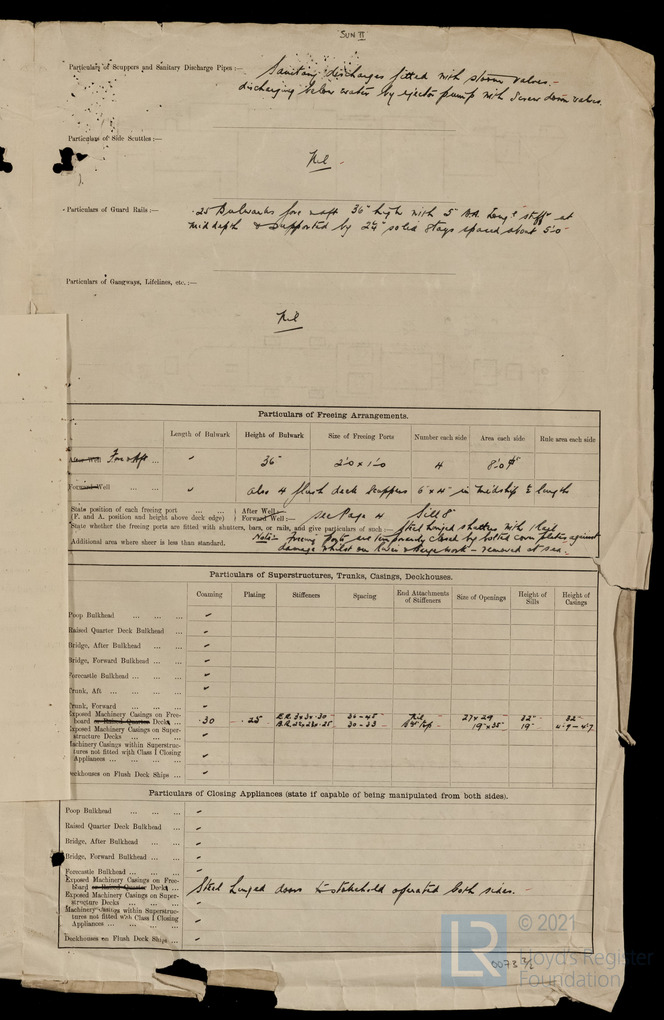 SUN II
Particulars of Scuppers and Sanitary Discharge Pipes:— Sanitary discharges fitted with storm valves.—
discharging below water by ejector pump with Screw down valves.
Particulars of Side Scuttles:—
Nil -
Particulars of Guard Rails:— .25 Bulwarks fore & aft 36" high with 5" B.A. Longl stiffr at
mid depth & supported by 2¼" solid stays spaced about 5'-0"
Particulars of Gangways, Lifelines, etc.:—
Nil
Particulars of Freeing Arrangements.
Length of Bulwark Height of Bulwark Size of Freeing Ports Number each side Area each side Rule area each side
Fore & Aft ... 36" 2'.0 x 1'.0 4 8'.0
Forward Well also 4 flush deck scuppers 6" x 4" in midship ½ length
State position of each freeing port ... ... After Well:—
(F. and A. position and height above deck edge) Forward Well:— see Page 4 Sill 8"
State whether the freeing ports are fitted with shutters, bars, or rails, and give particulars of such:— Steel hinged shutters with
Additional area where sheer is less than standard. Note:- Freeing Ports are temporarily closed by bolted cover plates against
damage whilst on River & Barge work — removed at sea.
Particulars of Superstructures, Trunks, Casings, Deckhouses.
Coaming Plating Stiffeners Spacing End Attachments of Stiffeners Size of Openings Height of Sills Height of Casings
Poop Bulkhead ... ... ...
Raised Quarter Deck Bulkhead ...
Bridge, After Bulkhead ... ...
Bridge, Forward Bulkhead ... ...
Forecastle Bulkhead ... ... ...
Trunk, Aft ... ... ... ...
Trunk, Forward ... ... ...
Exposed Machinery Casings on Free-
board or Raised Quarter Decks ... .30 .25 E.R. 3x3x.30 36-45 Nil 27 x 29 32" 32"
Exposed Machinery Casings on Super- 30-33 19 x 35 19" 4'.9-4'.7
structure Decks ... ... ...
Machinery Casings within Superstruc-
tures not fitted with Class I Closing
Appliances ... ... ... ...
Deckhouses on Flush Deck Ships ...
Particulars of Closing Appliances (state if capable of being manipulated from both sides).
Poop Bulkhead ... ... ...
Raised Quarter Deck Bulkhead ...
Bridge, After Bulkhead ... ...
Bridge, Forward Bulkhead ...
Forecastle Bulkhead ... ...
Exposed Machinery Casings on Free-
board or Raised Quarter Decks ... Steel hinged doors to stokehold operated both sides.
Exposed Machinery Casings on Super-
structure Decks ... ... ...
Machinery Casings within Superstruc-
tures not fitted with Class I Closing
Appliances ... ... ... ...
Deckhouses on Flush Deck Ships ...
LR © 2021
Lloyd's Register
Foundation
0073 2/2